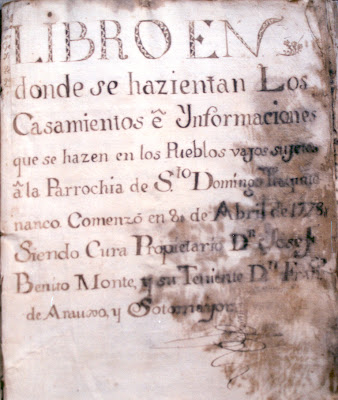 LIBRO EN
donde se hazientan Los
Casamientos ê Ynformaciones
que se hazen en los Pueblos vajos sujetos
â la Parrochia de S.to Domingo
nanco Comenzó en 8 de Abril de 1778
Siendo Cura Propietario D.n Josef
Benito Monte, y su Teniente D.n Fran.co
de Arauxo, y Sotomayor